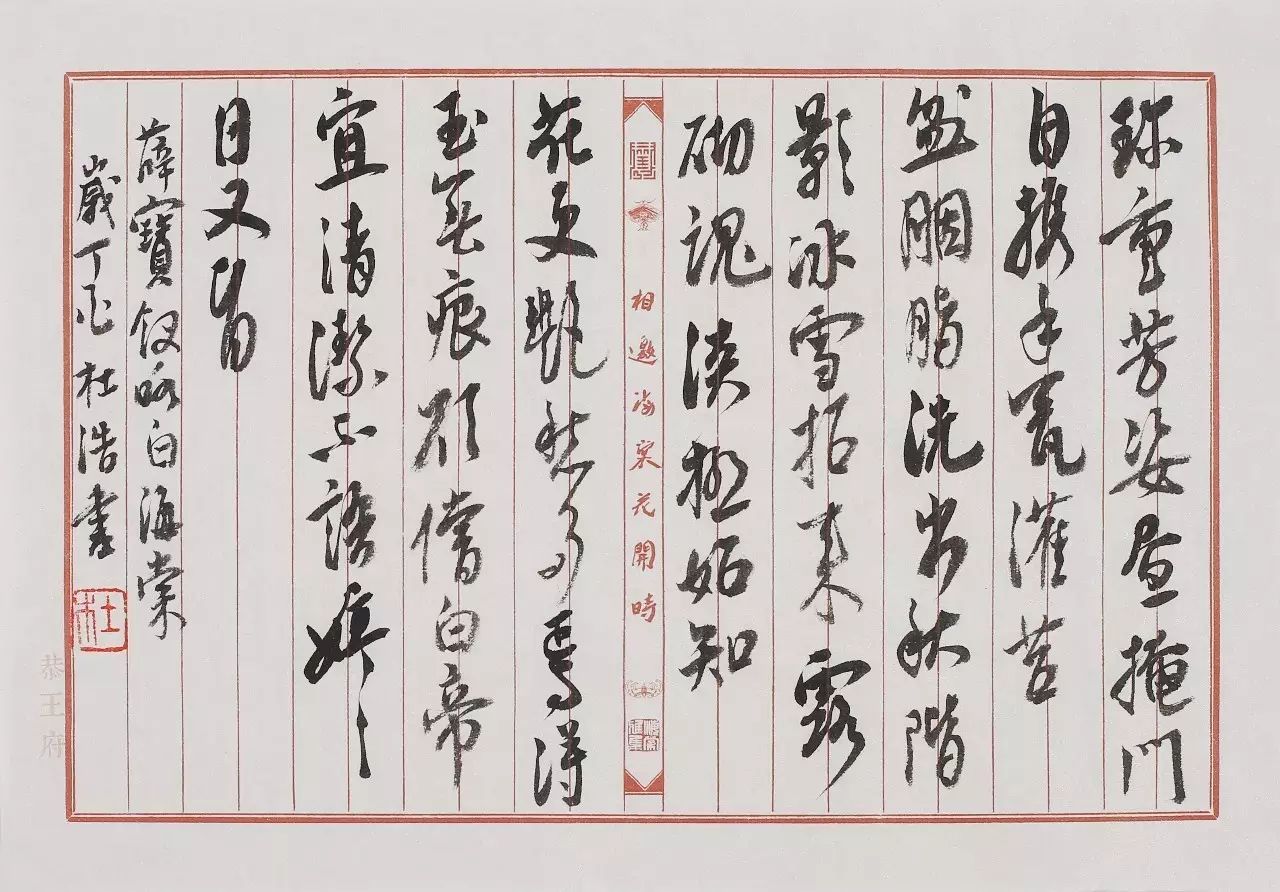 珍重芳姿晝掩門
自攜手甕灌苔
盆胭脂洗出秋階
影冰雪招來露
砌魂淡極始知
相邀海棠花開時
花更艷愁多焉得
玉無痕欲償白帝
宜清潔不語婷〻
日又昏
薛寶釵咏白海棠
歲丁酉杜浩書
杜
恭王府